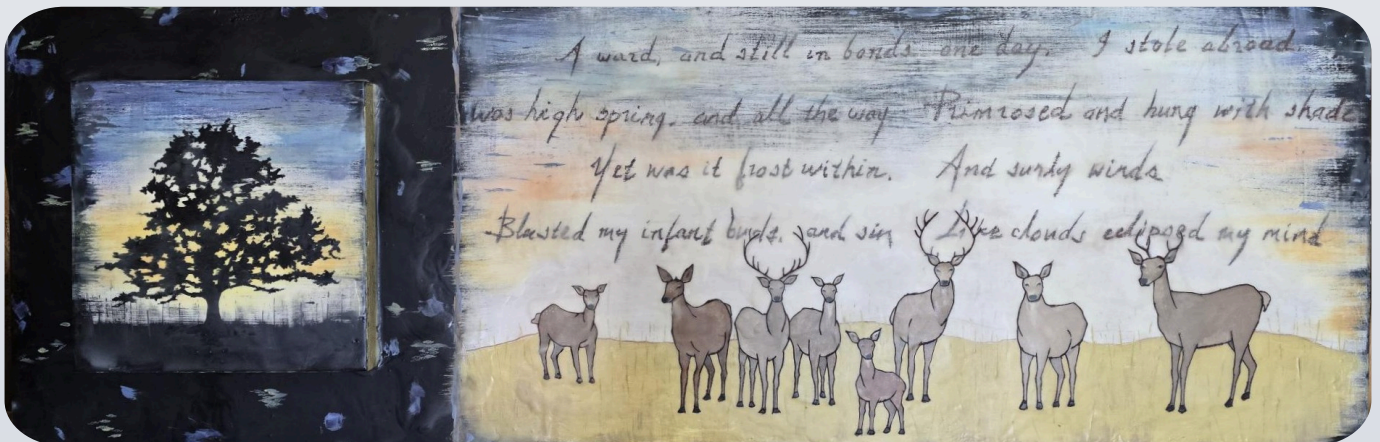 A ward, and still in bonds one day. I stole abroad.
was high spring. and all the way Primrosed and hung with shade
Yet was it frost within. And surly winds
Blasted my infant buds. and sin Like clouds eclipsed my mind